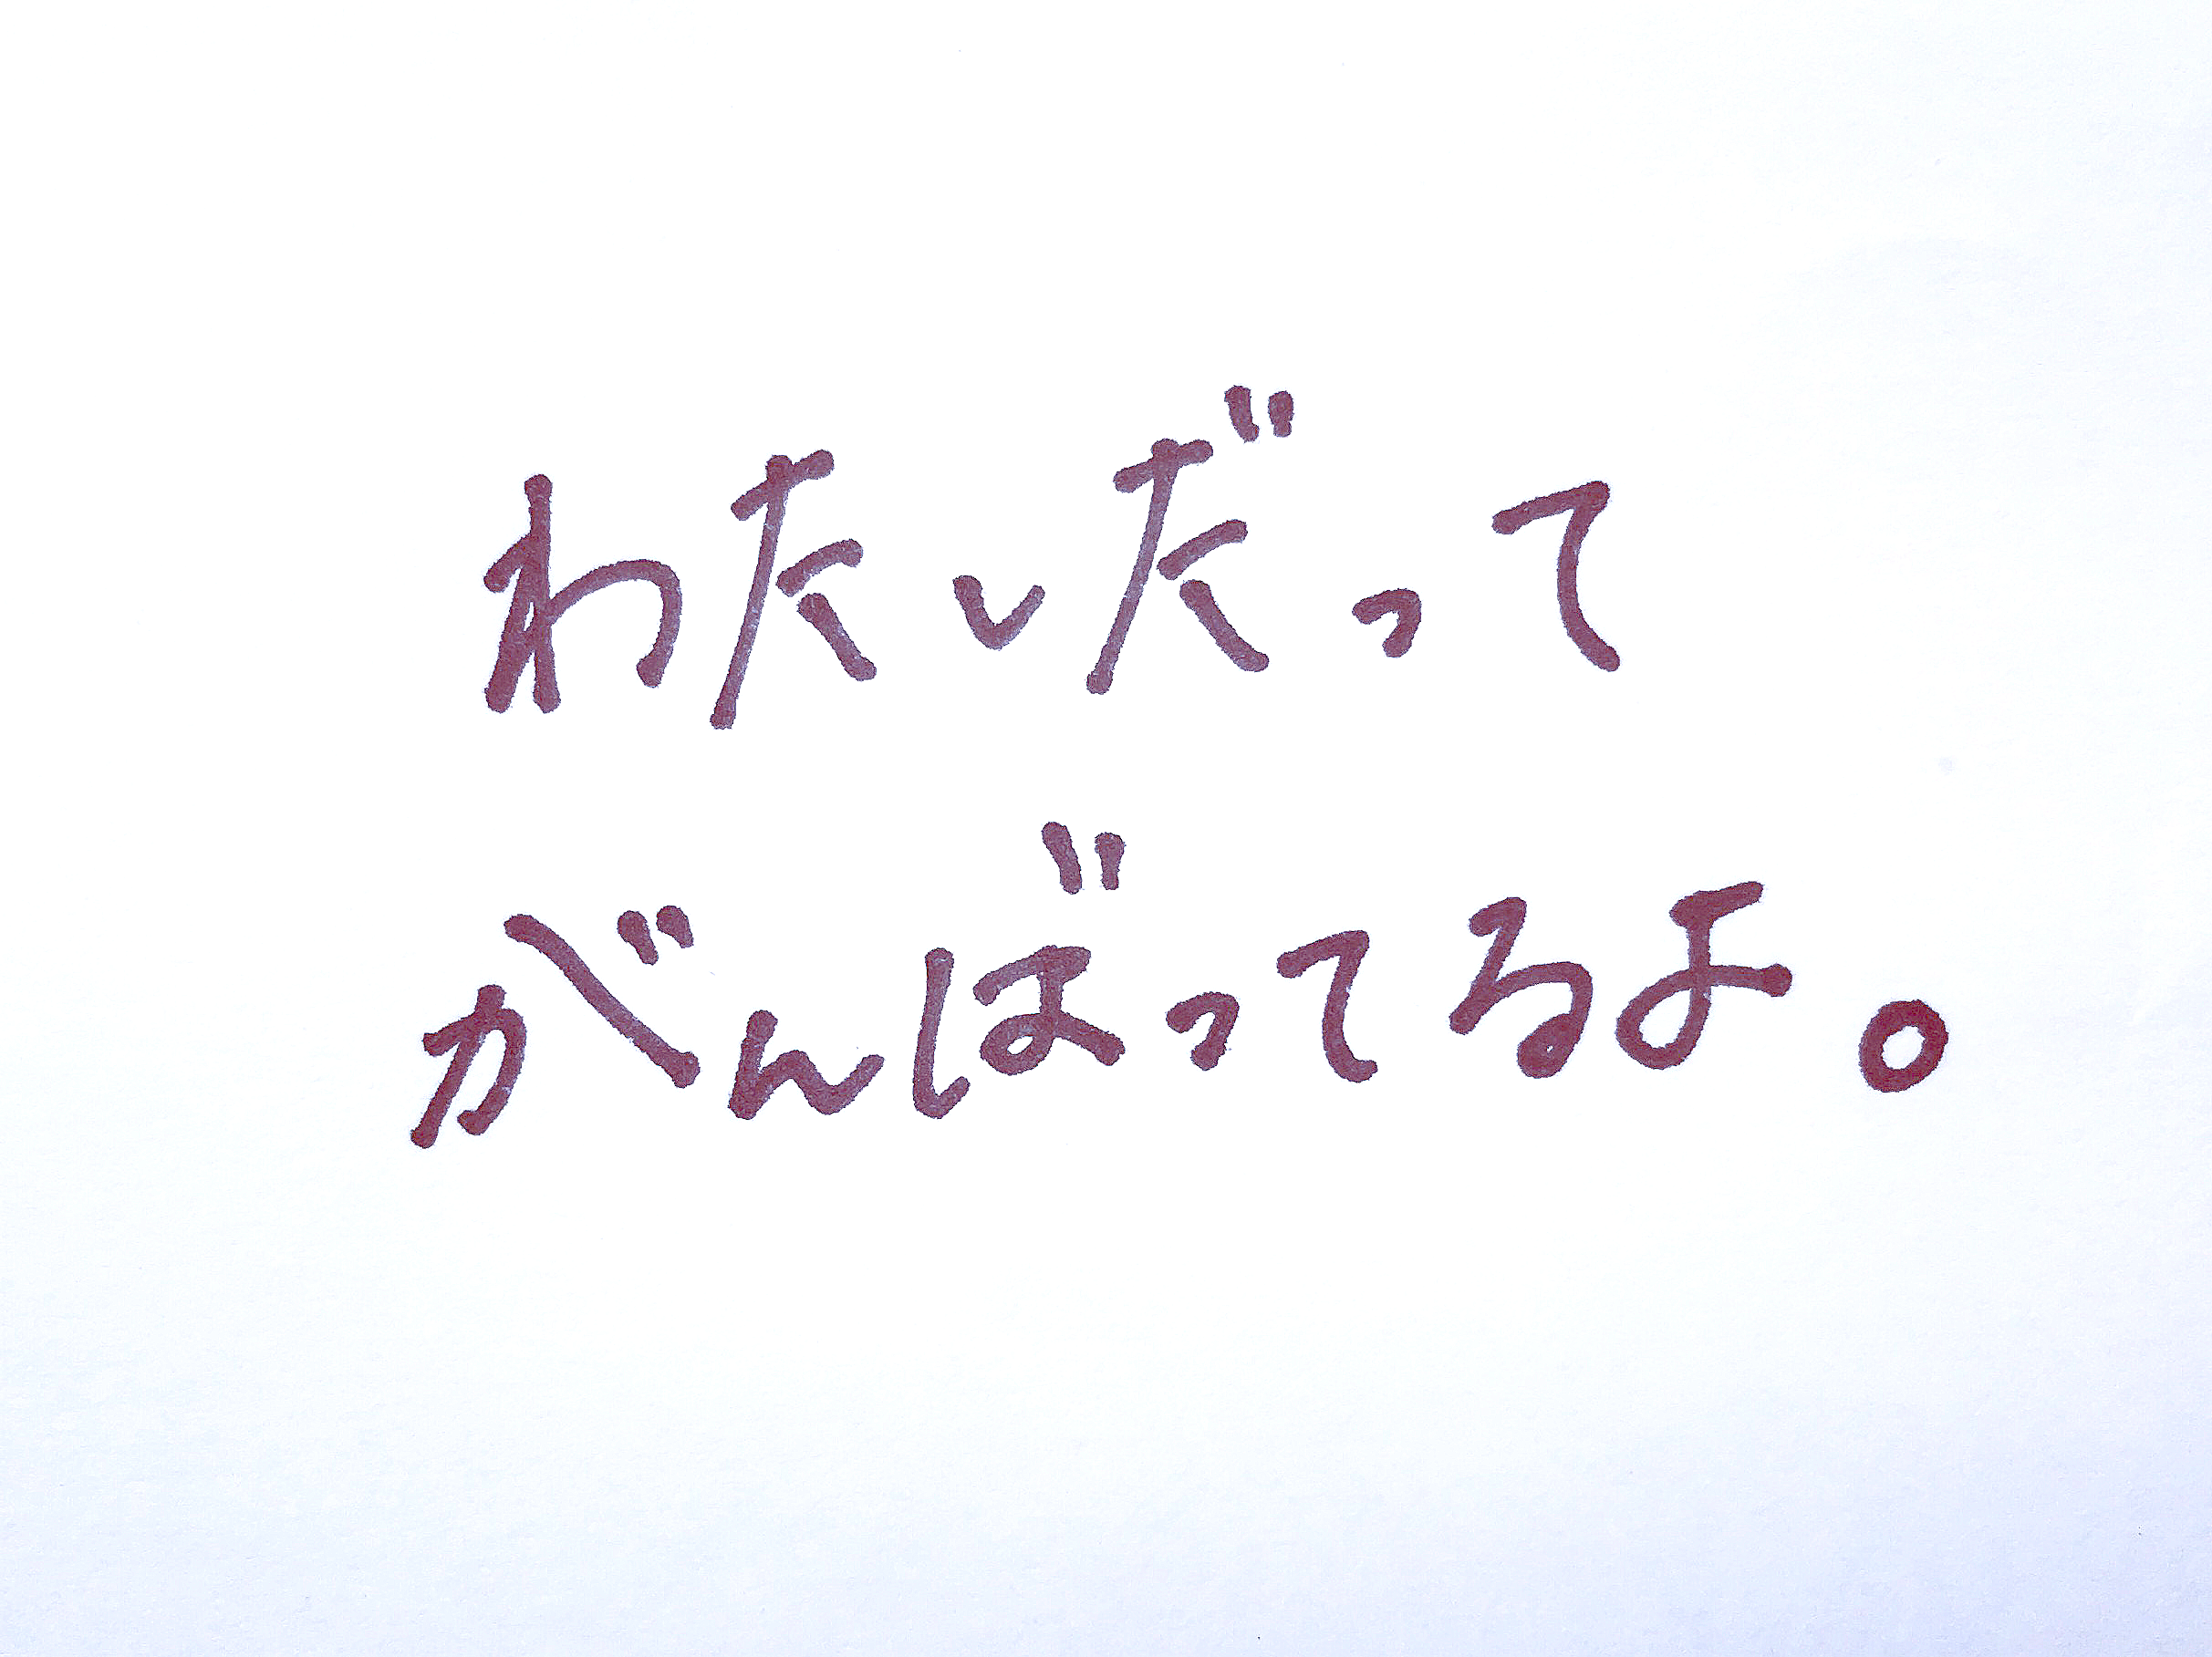 わたしだって
がんばってるよ。